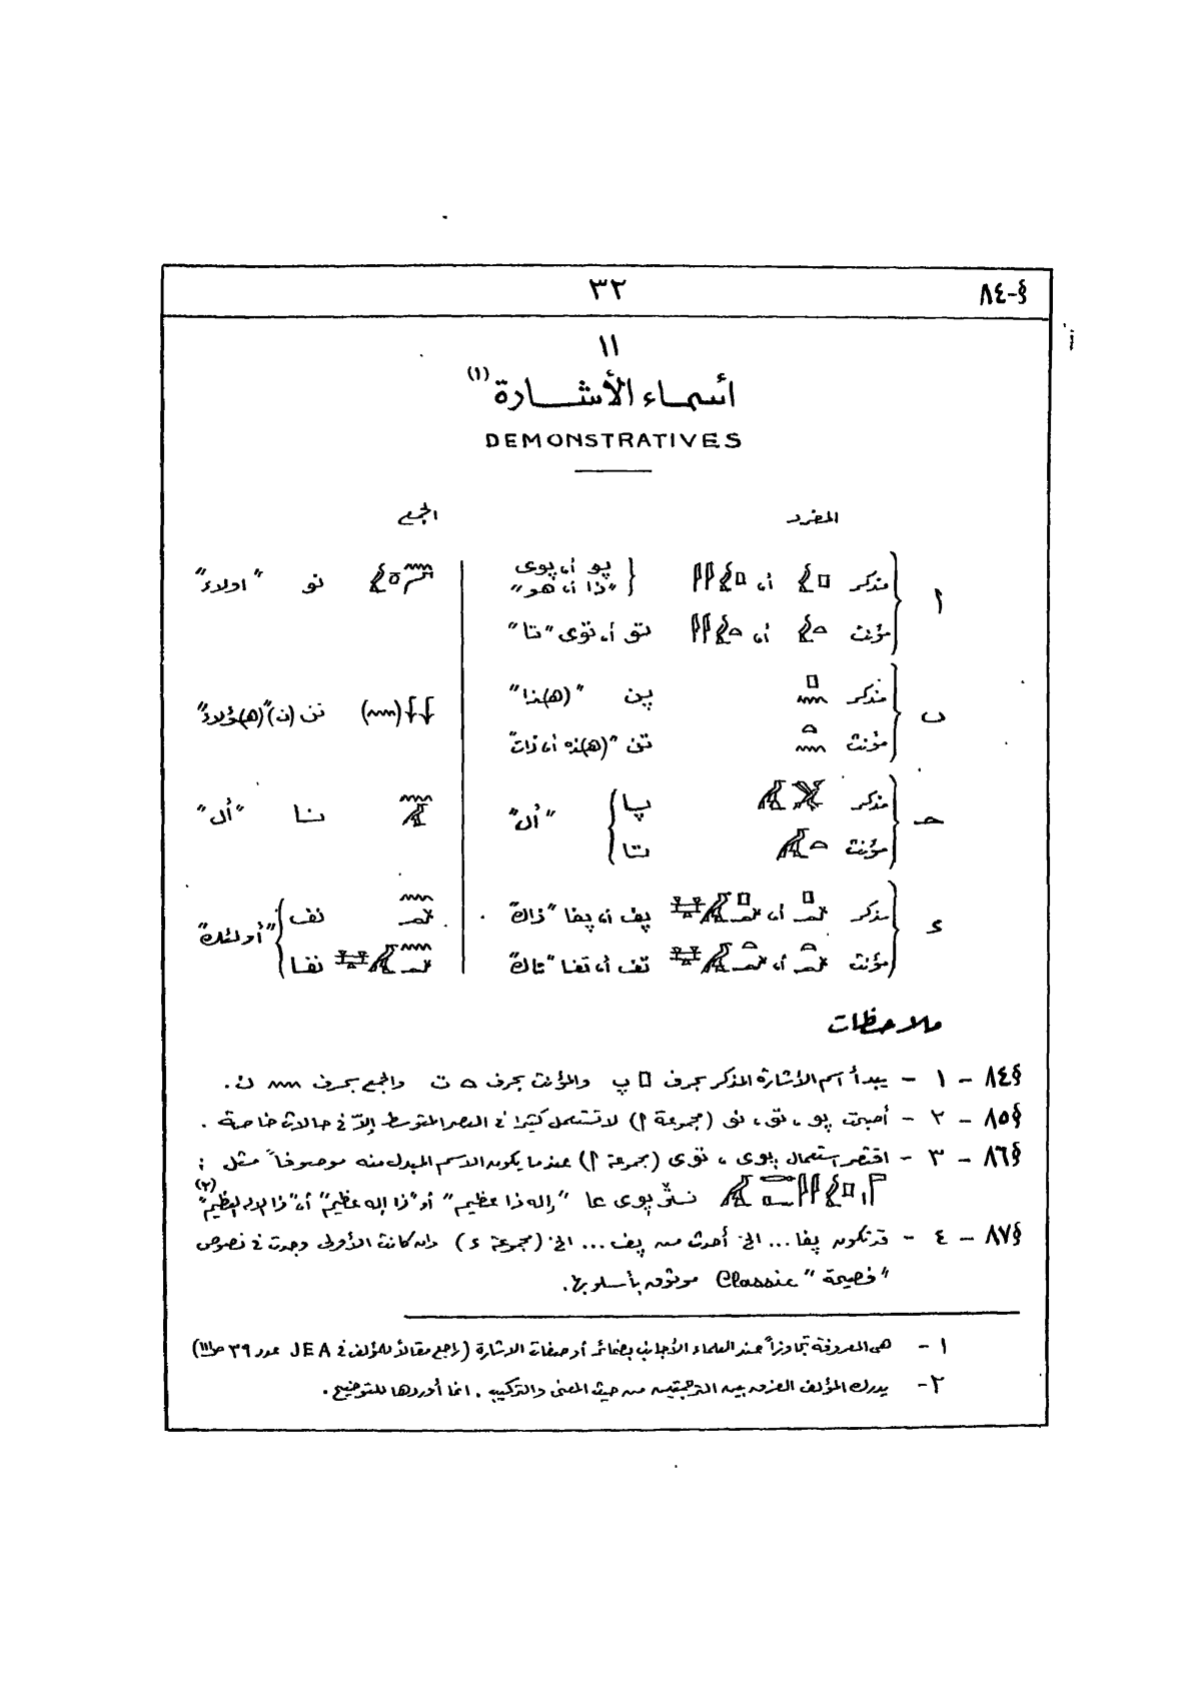 §-٨٤
٣٢
١١
أسماء الأشارة (١)
DEMONSTRATIVES
المفرد الجمع
أ
مذكر أى پو أى پوى "ذا أى هو" نو "اولاء"
مؤنث أى تو أى توى "تا"
ب
مذكر پن "(ه)ذا" نن (ن) "(ه)ؤلاء"
مؤنث تن "(ه)ذه أى ذات"
حـ
مذكر پا "أل" نا "أل"
مؤنث تا
ء
مذكر أى پف أى پفا "ذاك" نف "أولئك"
مؤنث أى تف أى تفا "تاك" نفا
ملاحظات
§٨٤ - ١ - يبدأ اسم الأشارة المذكر بحرف پ والمؤنث بحرف ت والجمع بحرف ن.
§٨٥ - ٢ - أصبحت پو، تو، نو (مجموعة أ) لا تستعمل كثيرا فى العصر المتوسط إلاّ فى حالات خاصة.
§٨٦ - ٣ - اقتصر استعمال پوى، توى (مجموعة أ) عندما يكون الاسم المبدل منه موصوفاً مثل :
نثر پوى عا "إله ذا عظيم" أو "ذا إله عظيم" أى "ذا الإله العظيم" (٢)
§٨٧ - ٤ - قد تكون پفا... الخ أحدث من پف... الخ (مجموعة ء) وان كانت الأولى وجدت فى نصوص
"فصيحة" Classic موثوق بأسلوبها.
١ - هى المعروفة تجاوزاً عند العلماء الأجانب بضمائر أو صفات الاشارة (راجع مقالاً للمؤلف فى JEA عدد ٣٩ ص١١١)
٢ - يدرك المؤلف الفرق بين الترجمتين من حيث المعنى والتركيب. انما أوردها للتوضيح.